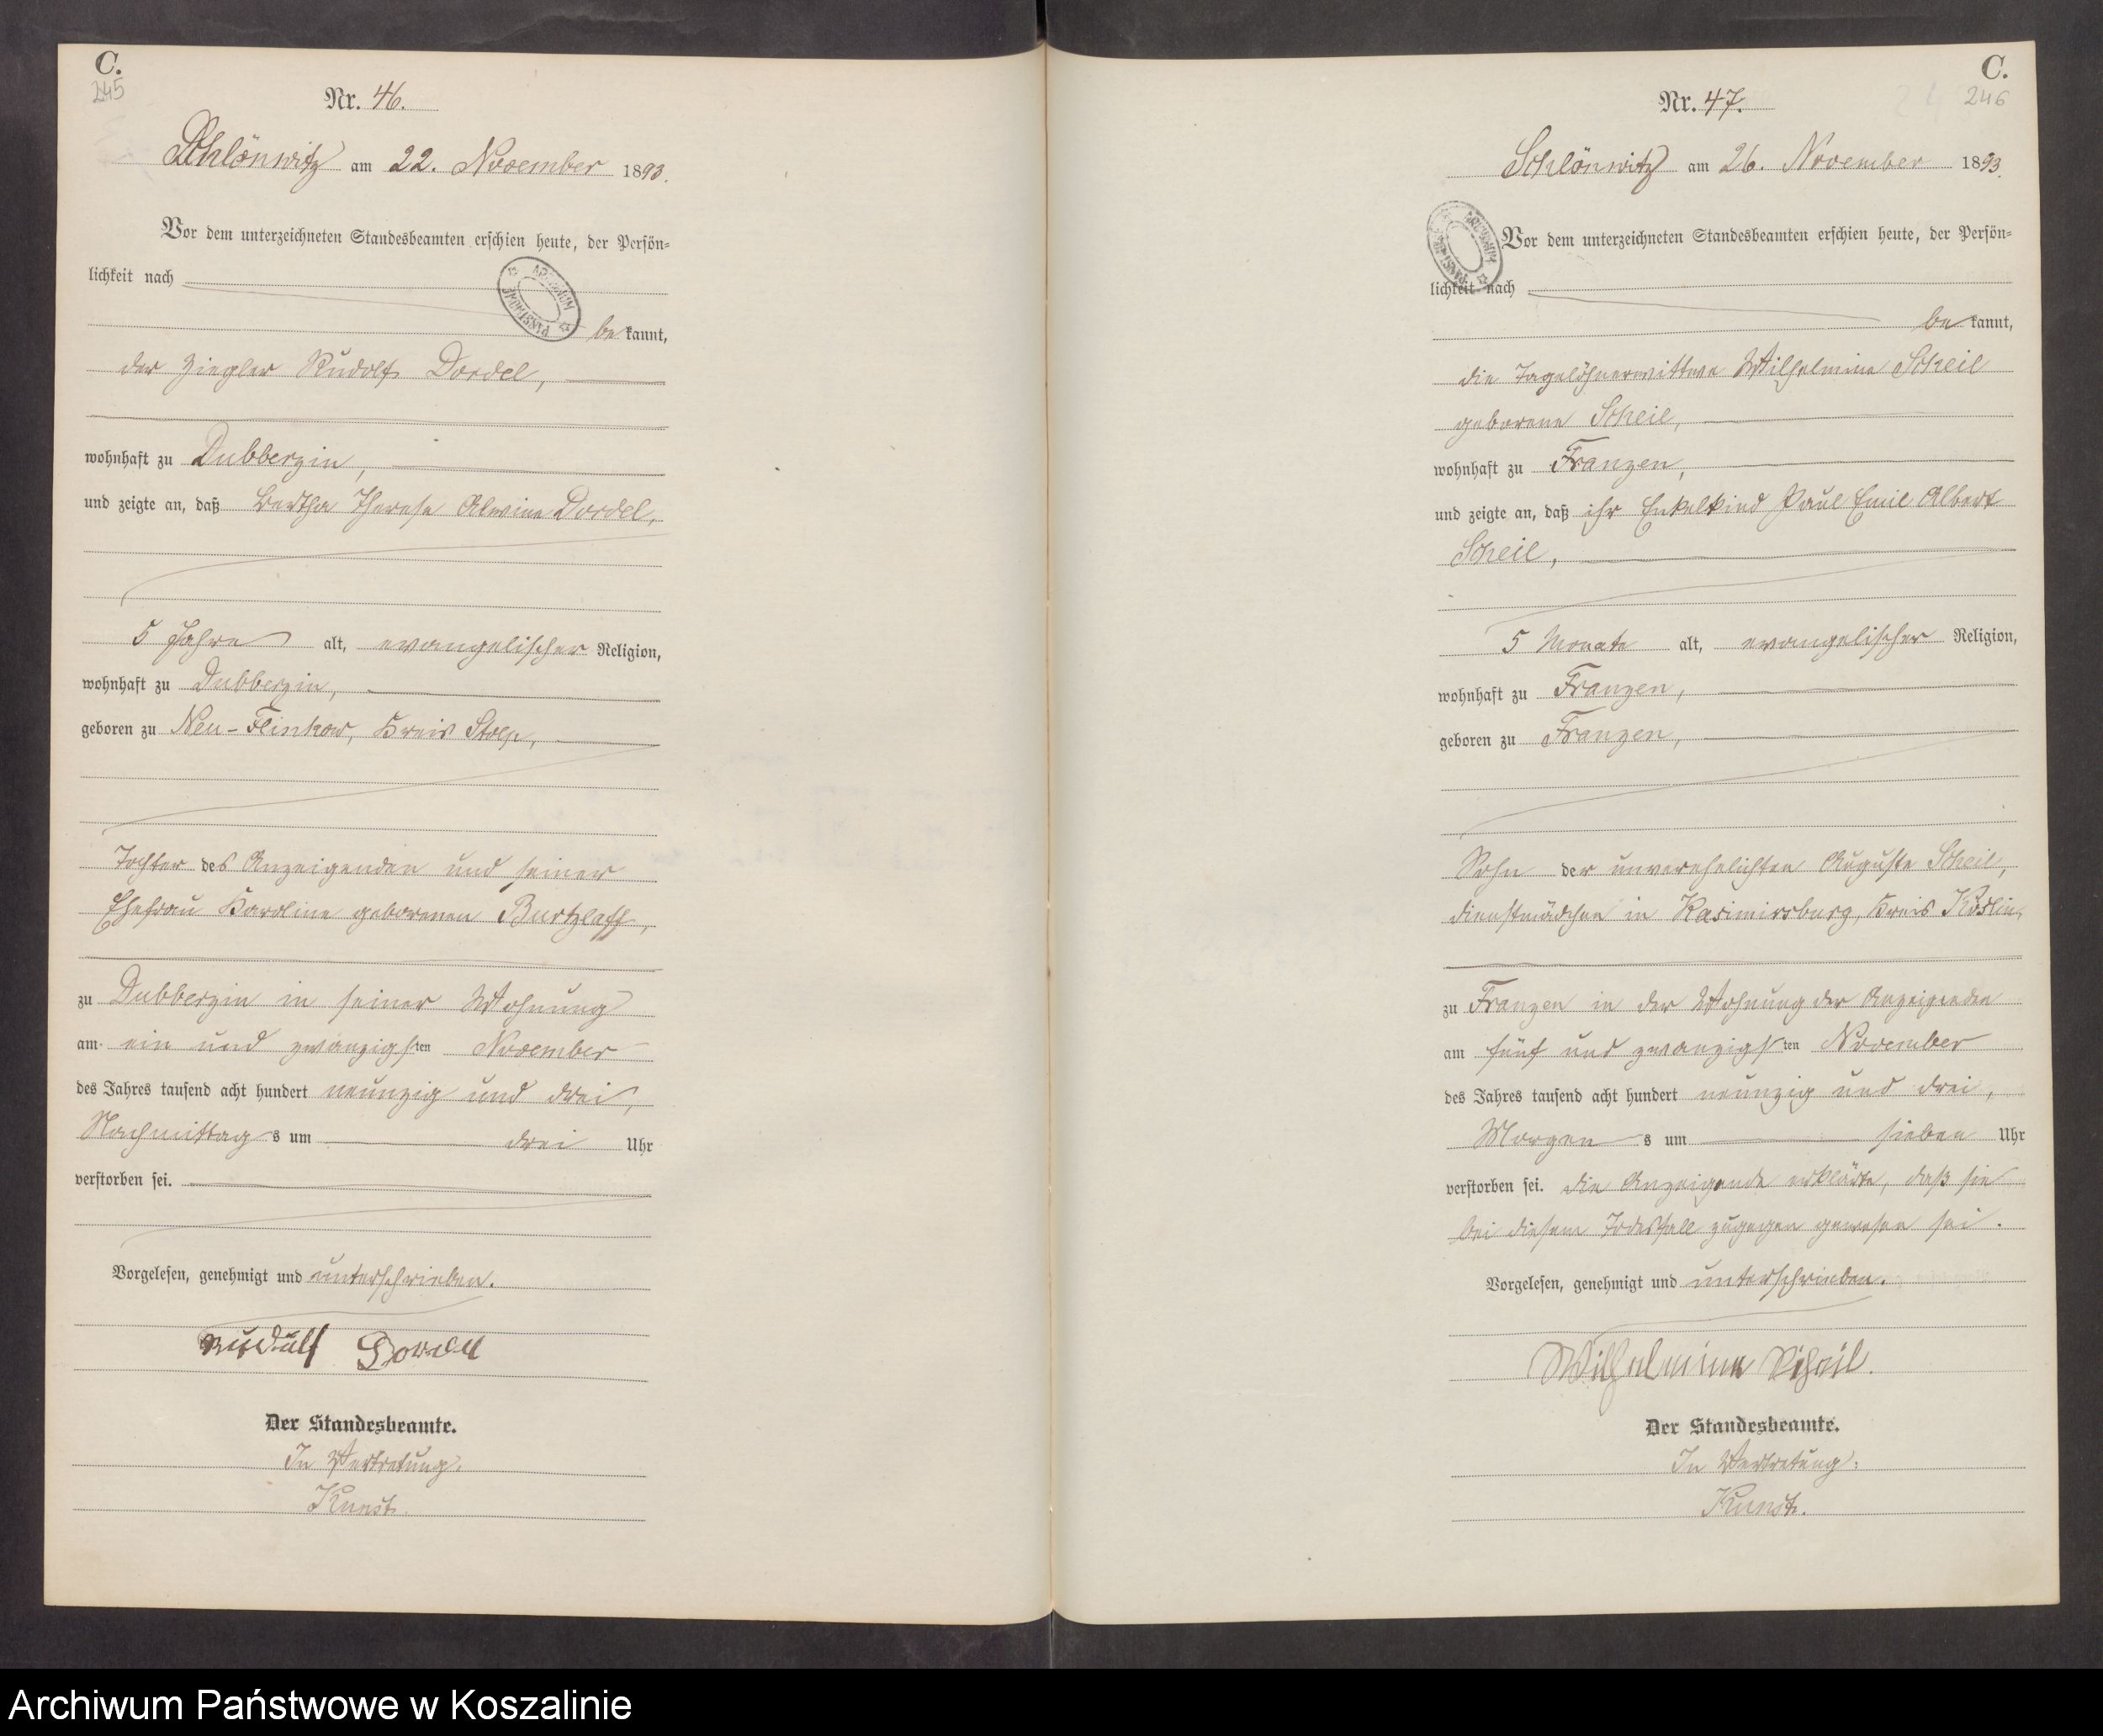 C.
245
Nr. 46.
Schlönwitz am 22. November 1893.
Vor dem unterzeichneten Standesbeamten erschien heute, der Persön=
lichkeit nach
be kannt,
der Ziegler Rudolf Dordel,
wohnhaft zu Dubberzin,
und zeigte an, daß Bertha Therese Alwine Dordel,
5 Jahre alt, evangelischer Religion,
wohnhaft zu Dubberzin,
geboren zu Neu-Flinkow, Kreis Stolp,
Tochter des Anzeigenden und seiner
Ehefrau Karoline geborenen Burtzlaff,
zu Dubberzin in seiner Wohnung
am ein und zwanzigsten November
des Jahres tausend acht hundert neunzig und drei,
Nachmittags um drei Uhr
verstorben sei.
Vorgelesen, genehmigt und unterschrieben.
Rudolf Dordel
Der Standesbeamte.
In Vertretung:
Kunst.
C.
246
Nr. 47.
Schlönwitz am 26. November 1893.
Vor dem unterzeichneten Standesbeamten erschien heute, der Persön=
lichkeit nach
be kannt,
die Tagelöhnerwittwe Wilhelmine Scheil
geborene Scheil,
wohnhaft zu Franzen,
und zeigte an, daß ihr Enkelkind Paul Emil Albert
Scheil,
5 Monate alt, evangelischer Religion,
wohnhaft zu Franzen,
geboren zu Franzen,
Sohn der unverehelichten Auguste Scheil,
Dienstmädchen in Kasimirsburg, Kreis Köslin,
zu Franzen in der Wohnung der Anzeigenden
am fünf und zwanzigsten November
des Jahres tausend acht hundert neunzig und drei,
Morgens um sieben Uhr
verstorben sei. Die Anzeigende erklärte, daß sie
bei diesem Todesfall zugegen gewesen sei.
Vorgelesen, genehmigt und unterschrieben.
Wilhelmine Scheil.
Der Standesbeamte.
In Vertretung:
Kunst.
Archiwum Państwowe w Koszalinie